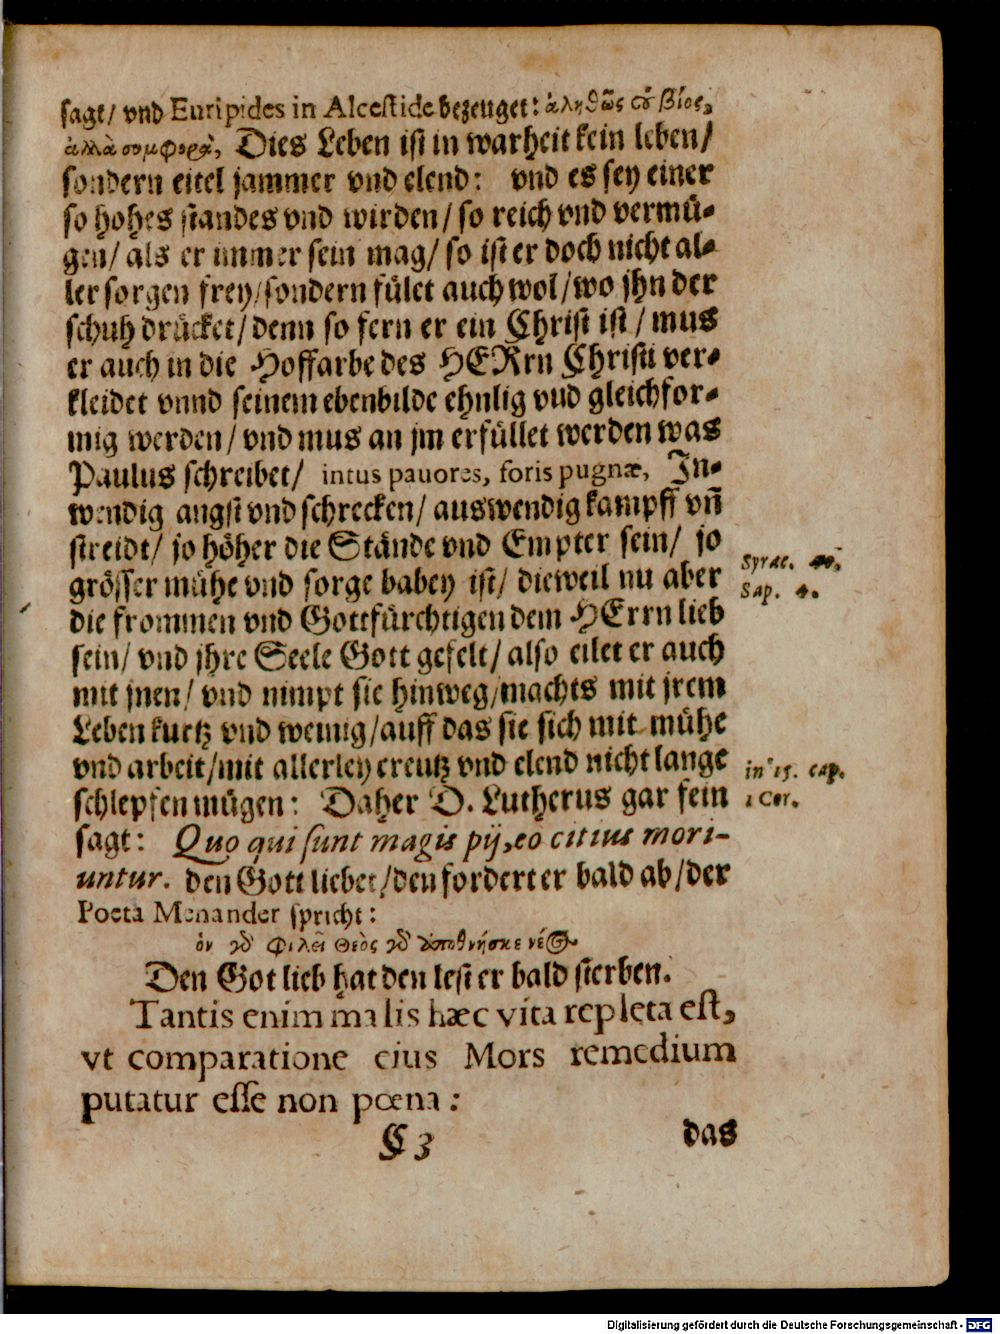 sagt/ vnd Euripides in Alcestide bezeuget: ἀληθῶς οὐ βίος,
ἀλλὰ συμφορὰ, Dies Leben ist in warheit kein leben/
sondern eitel jammer vnd elend: vnd es sey einer
so hohes standes vnd wirden/ so reich vnd vermü-
gen/ als er immer sein mag/ so ist er doch nicht al-
ler sorgen frey/sondern fület auch wol/wo jhn der
schuh drücket/denn so fern er ein Christ ist/ mus
er auch in die Hoffarbe des HERrn Christi ver-
kleidet vnnd seinem ebenbilde ehnlig vnd gleichfor-
mig werden/ vnd mus an jm erfüllet werden was
Paulus schreibet/ intus pavores, foris pugnæ, In-
wendig angst vnd schrecken/ auswendig kampff vñ
streidt/ jo höher die Stände vnd Empter sein/ jo
grösser mühe vnd sorge babey ist/ dieweil nu aber
Syrac.
Sap. 4.
die frommen vnd Gottfürchtigen dem HErrn lieb
sein/ vnd jhre Seele Gott gefelt/ also eilet er auch
mit jnen/ vnd nimpt sie hinweg/machts mit jrem
Leben kurtz vnd wenig/auff das sie sich mit mühe
vnd arbeit/mit allerley creutz vnd elend nicht lange
in 15. cap.
1 Cor.
schlepfen mügen: Daher D. Lutherus gar fein
sagt: Quo qui sunt magis pij, eo citius mori-
untur. den Gott liebet/den fordert er bald ab/der
Poeta Menander spricht:
ὃν γὸ φιλεῖ Θεὸς γὸ ἀποθνήσκει νέος.
Den Got lieb hat den lest er bald sterben.
Tantis enim malis hæc vita repleta est,
vt comparatione eius Mors remedium
putatur esse non pœna:
3
das
Digitalisierung gefördert durch die Deutsche Forschungsgemeinschaft - DFG